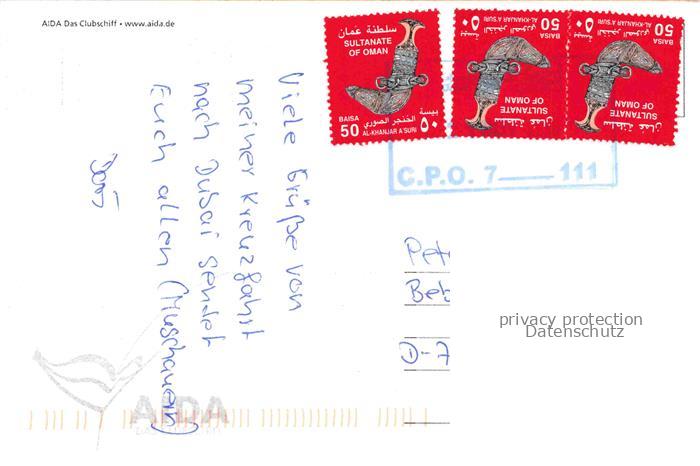 AIDA Das Clubschiff • www.aida.de
سلطنة عمان
SULTANATE
OF OMAN
BAISA
50
بيسة
٥٠
الخنجر الصوري
AL-KHANJAR A'SURI
سلطنة عمان
SULTANATE
OF OMAN
BAISA
50
بيسة
٥٠
الخنجر الصوري
AL-KHANJAR A'SURI
سلطنة عمان
SULTANATE
OF OMAN
BAISA
50
بيسة
٥٠
الخنجر الصوري
AL-KHANJAR A'SURI
C.P.O. 7 111
Viele Grüße von
meiner Kreuzfahrt
nach Dubai sendet
Euch allen
Pet
D-7
privacy protection
Datenschutz
AIDA